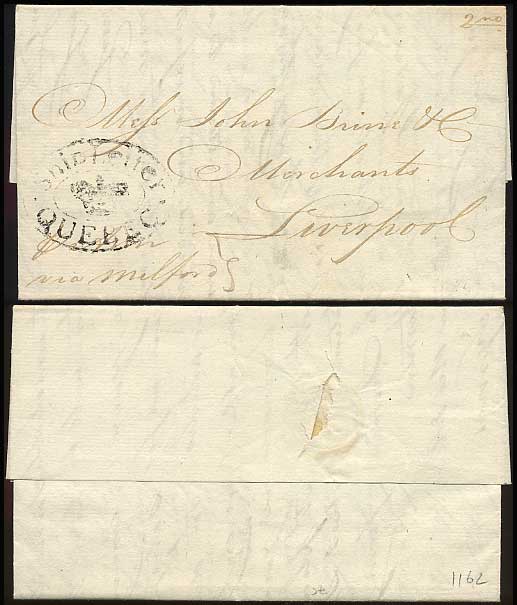 2no
Mess John Brine & C
Merchants
Liverpool
Ship Letter
QUEBEC
via Milford
1162